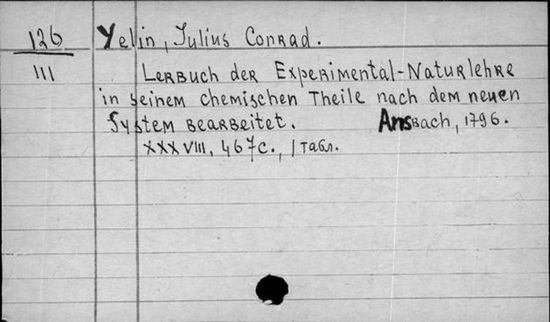 126
III
Yelin, Julius Conrad.
Lerbuch der Experimental-Naturlehre
in seinem chemischen Theile nach dem neuen
System bearbeitet. Ansbach, 1796.
XXXVIII, 467с., 1 табл.